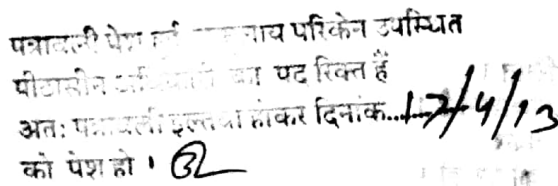 पत्रावली पेश हुई परिकेन उपस्थित
पीठासीन का पद रिक्त हैं
अतः पत्रावली इल्तवा होकर दिनांक.....17/4/13
को पेश हो ।